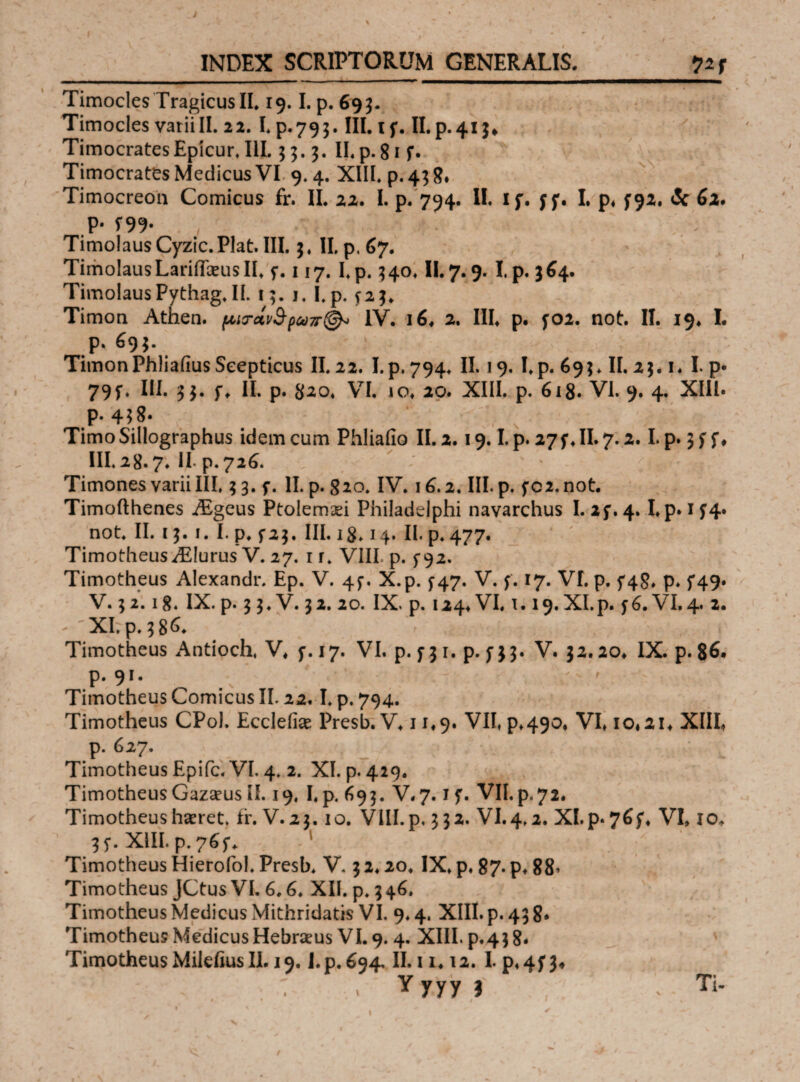 INDEX SCRIPTORUM GENERALIS. 725
Timocles Tragicus II. 19. I. p. 693.
Timocles varii II. 22. I. p. 793. III. 15. II. p. 413.
Timocrates Epicur. III. 33. 3. II. p. 815.
Timocrates Medicus VI 9. 4. XIII. p. 438.
Timocreon Comicus fr. II. 22. I. p. 794. II. 15. 55. I. p. 592. & 62.
p. 599.
Timolaus Cyzic. Plat. III. 3. II. p. 67.
Timolaus Larissæus II. 5. 117. I. p. 340. II. 7. 9. I. p. 364.
Timolaus Pythag. II. 13. 1. I. p. 523.
Timon Athen. μισάνθρωπ@ IV. 16. 2. III. p. 502. not. II. 19. I.
p. 693.
Timon Phliasius Scepticus II. 22. I. p. 794. II. 19. I. p. 693. II. 23. 1. I. p.
795. III. 33. 5. II. p. 820. VI. 10. 20. XIII. p. 618. VI. 9. 4. XIII.
p. 438.
Timo Sillographus idem cum Phliasio II. 2. 19. I. p. 275. II. 7. 2. I. p. 355.
III. 28. 7. II. p. 726.
Timones varii III. 33. 5. II. p. 820. IV. 16. 2. III. p. 502. not.
Timosthenes Ægeus Ptolemæi Philadelphi navarchus I. 25. 4. I. p. 154.
not. II. 13. 1. I. p. 523. III. 18. 14. II. p. 477.
Timotheus Ælurus V. 27. 11. VIII. p. 592.
Timotheus Alexandr. Ep. V. 45. X. p. 547. V. 5. 17. VI. p. 548. p. 549.
V. 32. 18. IX. p. 33. V. 32. 20. IX. p. 124. VI. 1. 19. XI. p. 56. VI. 4. 2.
XI. p. 386.
Timotheus Antioch. V. 5. 17. VI. p. 531. p. 533. V. 32. 20. IX. p. 86.
p. 91.
Timotheus Comicus II. 22. I. p. 794.
Timotheus CPol. Ecclesiæ Presb. V. 11. 9. VII. p. 490. VI. 10. 21. XIII.
p. 627.
Timotheus Episc. VI. 4. 2. XI. p. 429.
Timotheus Gazæus II. 19. I. p. 693. V. 7. 15. VII. p. 72.
Timotheus hæret. fr. V. 23. 10. VIII. p. 332. VI. 4. 2. XI. p. 765. VI. 10.
35. XIII. p. 765.
Timotheus Hierosol. Presb. V. 32. 20. IX. p. 87. p. 88.
Timotheus JCtus VI. 6. 6. XII. p. 346.
Timotheus Medicus Mithridatis VI. 9. 4. XIII. p. 438.
Timotheus Medicus Hebræus VI. 9. 4. XIII. p. 438.
Timotheus Milesius II. 19. I. p. 694. II. 11. 12. I. p. 453.
Yyyy 3 Ti-